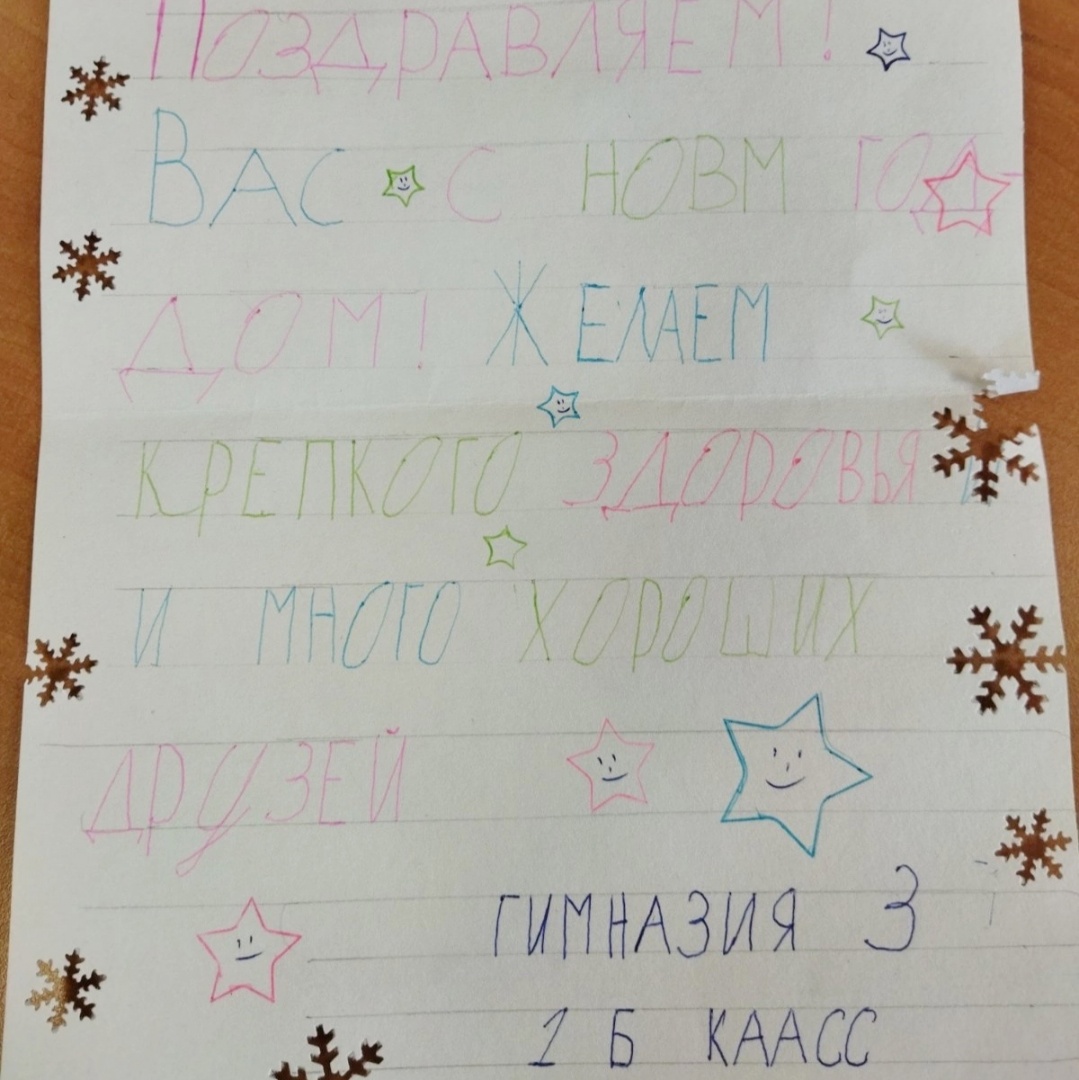 ПОЗДРАВЛЯЕМ!
ВАС С НОВМ ГОД-
ДОМ! ЖЕЛАЕМ
КРЕПКОГО ЗДОРОВЬЯ И
И МНОГО ХОРОШИХ
ДРУЗЕЙ
ГИМНАЗИЯ 3
1 Б КААСС